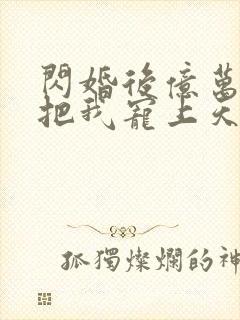 閃婚後億萬
把我寵上天
孤獨燦爛的神